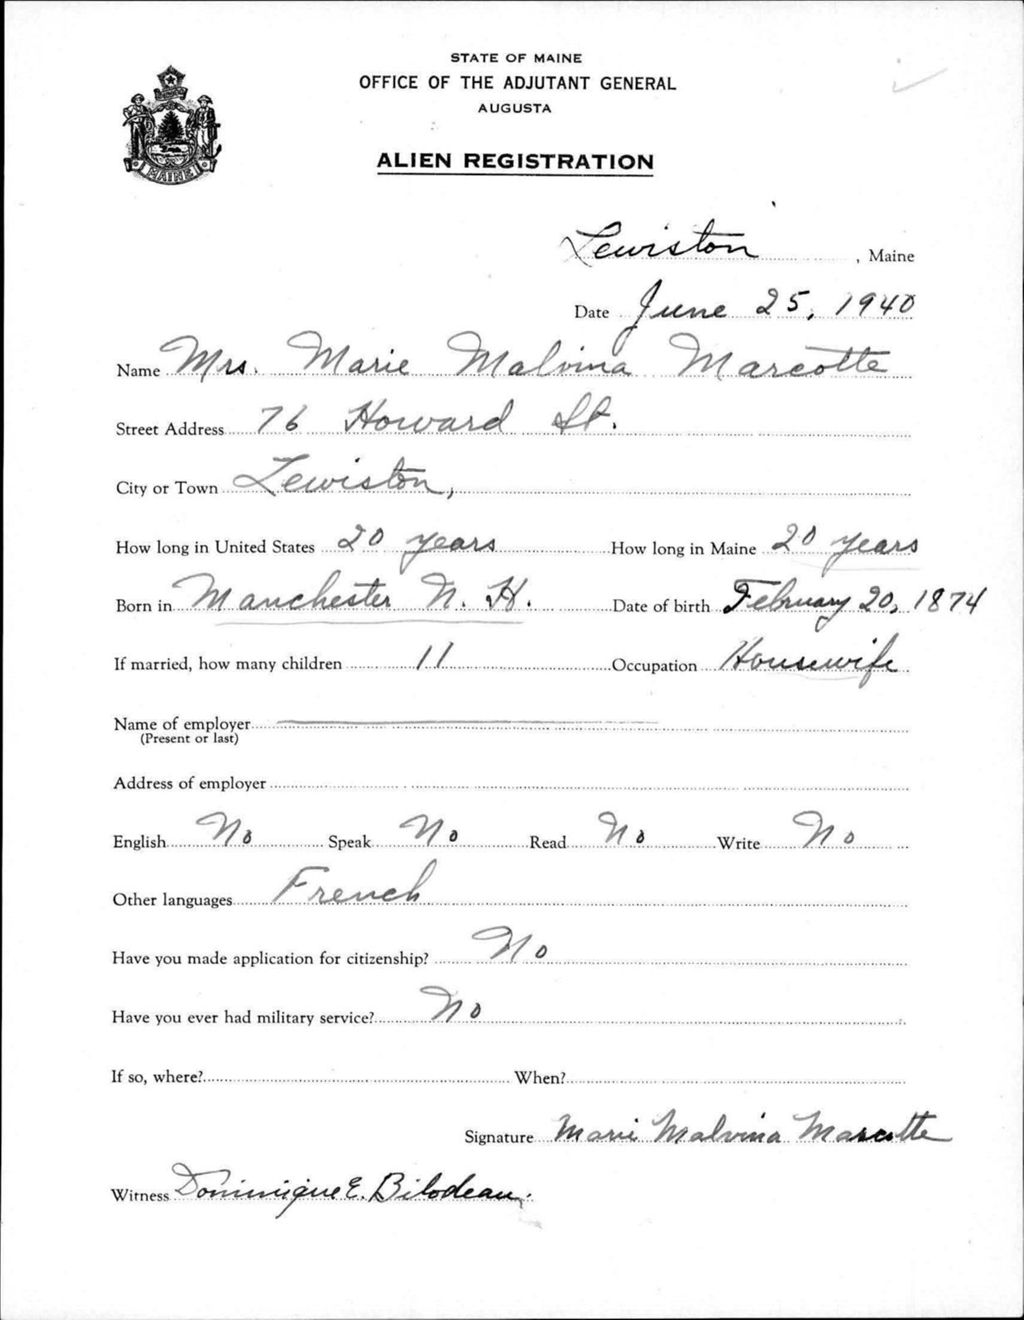 STATE OF MAINE
OFFICE OF THE ADJUTANT GENERAL
AUGUSTA
ALIEN REGISTRATION
MAINE
Lewiston, Maine
Date June 25, 1940
Name Mrs. Marie Malvina Marcotte
Street Address 76 Howard St.
City or Town Lewiston,
How long in United States 20 years How long in Maine 20 years
Born in Manchester N. H. Date of birth February 20, 1874
If married, how many children 11 Occupation Housewife
Name of employer
(Present or last)
Address of employer
English No Speak No Read No Write No
Other languages French
Have you made application for citizenship? No
Have you ever had military service? No
If so, where? When?
Signature Marie Malvina Marcotte
Witness Dominique E. Bilodeau.